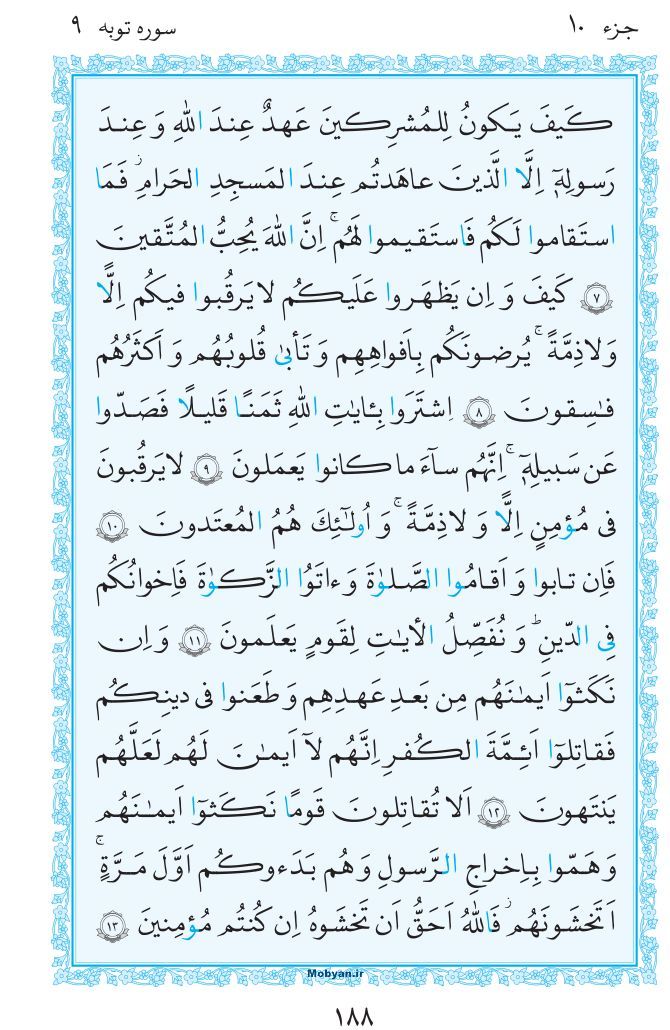 جزء ۱۰
سوره توبه ۹
كَيفَ يَكونُ لِلمُشرِكينَ عَهدٌ عِندَ اللهِ وَ عِندَ
رَسولِهٓ اِلَّا الَّذينَ عاهَدتُم عِندَ المَسجِدِ الحَرامِ ۖ فَمَا
استَقاموا لَكُم فَاستَقيموا لَهُم ۚ اِنَّ اللهَ يُحِبُّ المُتَّقينَ
﴿۷﴾ كَيفَ وَ اِن يَظهَروا عَلَيكُم لا يَرقُبوا فيكُم اِلًّا
وَلا ذِمَّةً ۚ يُرضونَكُم بِاَفواهِهِم وَ تَأبىٰ قُلوبُهُم وَ اَكثَرُهُم
فٰسِقونَ ﴿۸﴾ اِشتَرَوا بِـٔايٰتِ اللهِ ثَمَنًا قَليلًا فَصَدّوا
عَن سَبيلِهٓ ۚ اِنَّهُم سآءَ ما كانوا يَعمَلونَ ﴿۹﴾ لا يَرقُبونَ
فى مُؤمِنٍ اِلًّا وَ لا ذِمَّةً ۚ وَ اُولٰٓئِكَ هُمُ المُعتَدونَ ﴿۱۰﴾
فَاِن تابوا وَ اَقامُوا الصَّلوٰةَ وَ ءاتَوُا الزَّكوٰةَ فَاِخوانُكُم
فِى الدّينِ ۗ وَ نُفَصِّلُ الأيٰتِ لِقَومٍ يَعلَمونَ ﴿۱۱﴾ وَ اِن
نَكَثوٓا اَيمٰنَهُم مِن بَعدِ عَهدِهِم وَ طَعَنوا فى دينِكُم
فَقاتِلوٓا اَئِمَّةَ الكُفرِ اِنَّهُم لآ اَيمٰنَ لَهُم لَعَلَّهُم
يَنتَهونَ ﴿۱۲﴾ اَلا تُقاتِلونَ قَومًا نَكَثوٓا اَيمٰنَهُم
وَ هَمّوا بِاِخراجِ الرَّسولِ وَ هُم بَدَءوكُم اَوَّلَ مَرَّةٍ ۚ
اَتَخشَونَهُم ۖ فَاللهُ اَحَقُّ اَن تَخشَوهُ اِن كُنتُم مُؤمِنينَ ﴿۱۳﴾
Mobyan.ir
۱۸۸